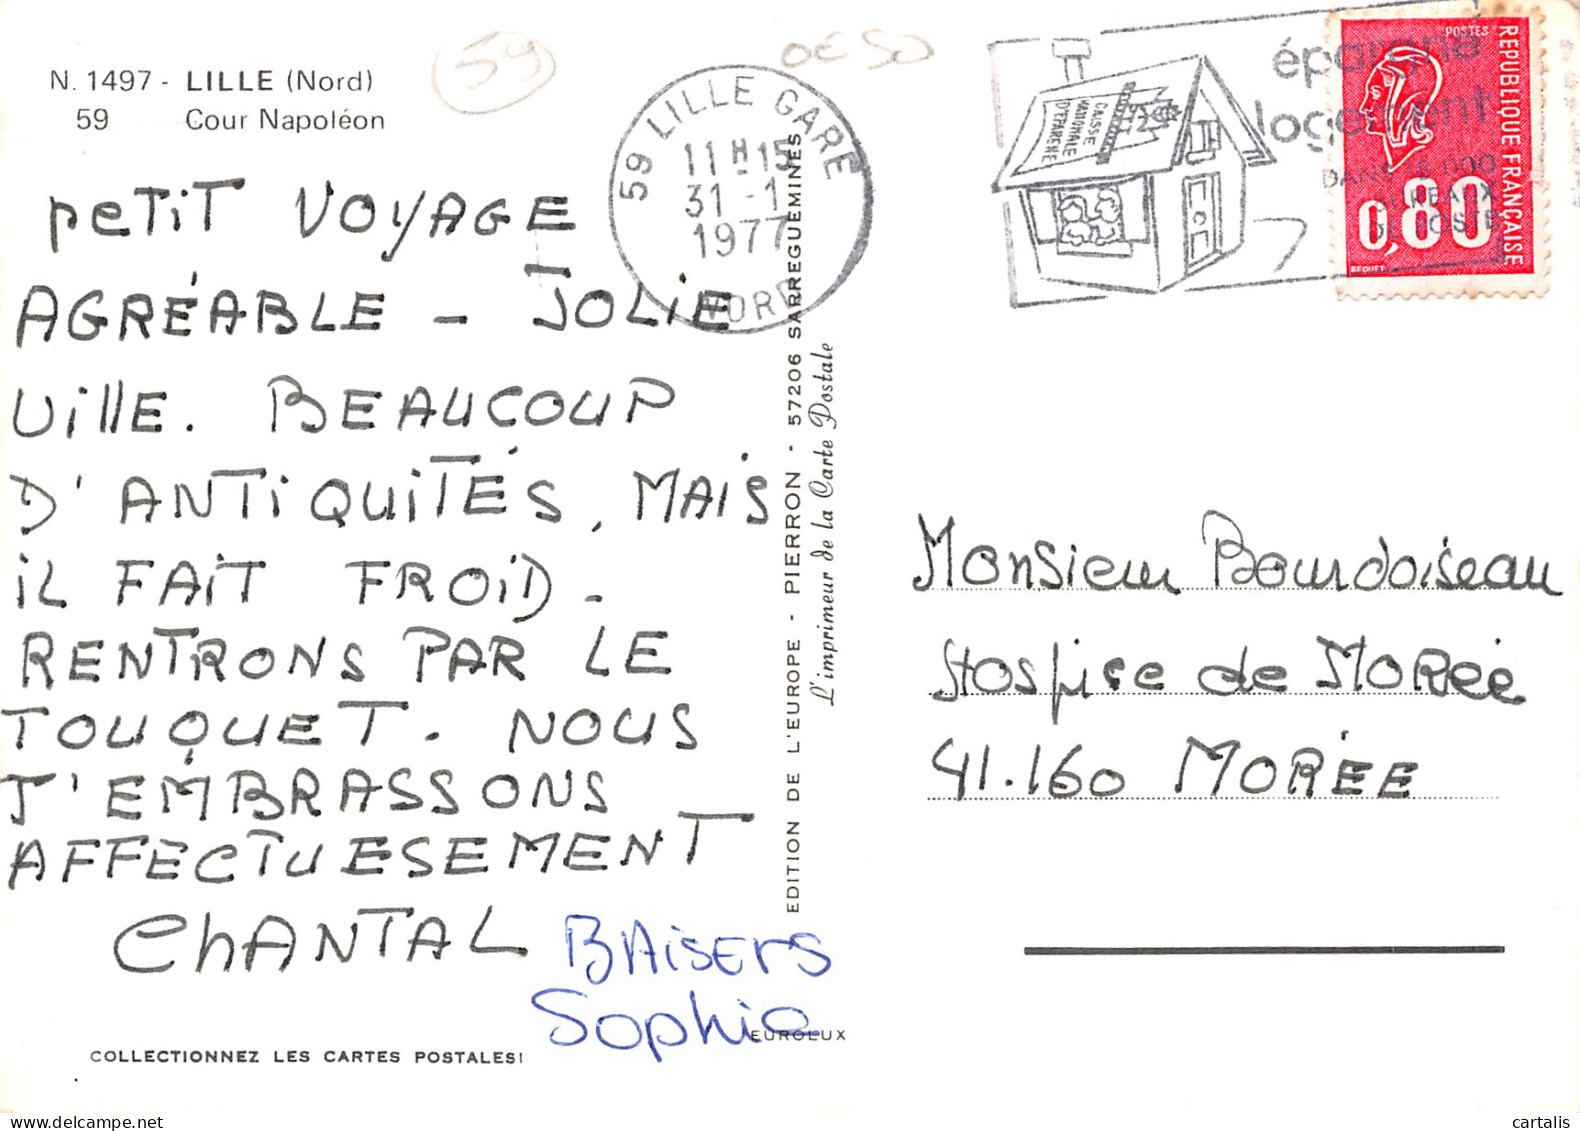 N. 1497 - LILLE (Nord)
59 Cour Napoléon
59
0€50
59 LILLE GARE
11H15
31 - 1
1977
NORD
CAISSE
NATIONALE
D'EPARGNE
épargne
logement
BUREAUX
DE POSTE
POSTES
REPUBLIQUE FRANÇAISE
0,80
BEQUET
PETIT VOYAGE
AGRÉABLE - JOLIE
VillE. BEAUCOUP
D'ANTIQUITÉS, MAIS
IL FAIT FROID -
RENTRONS PAR LE
TOUQUET. NOUS
T'EMBRASSONS
AFFECTUESEMENT
CHANTAL
BAISERS
Sophie
EDITION DE L'EUROPE - PIERRON - 57206 SARREGUEMINES
L'imprimeur de la Carte Postale
Monsieur Bourdoiseau
Hospice de MORéé
41.160 MORÉE
EUROLUX
COLLECTIONNEZ LES CARTES POSTALES!
cartalis